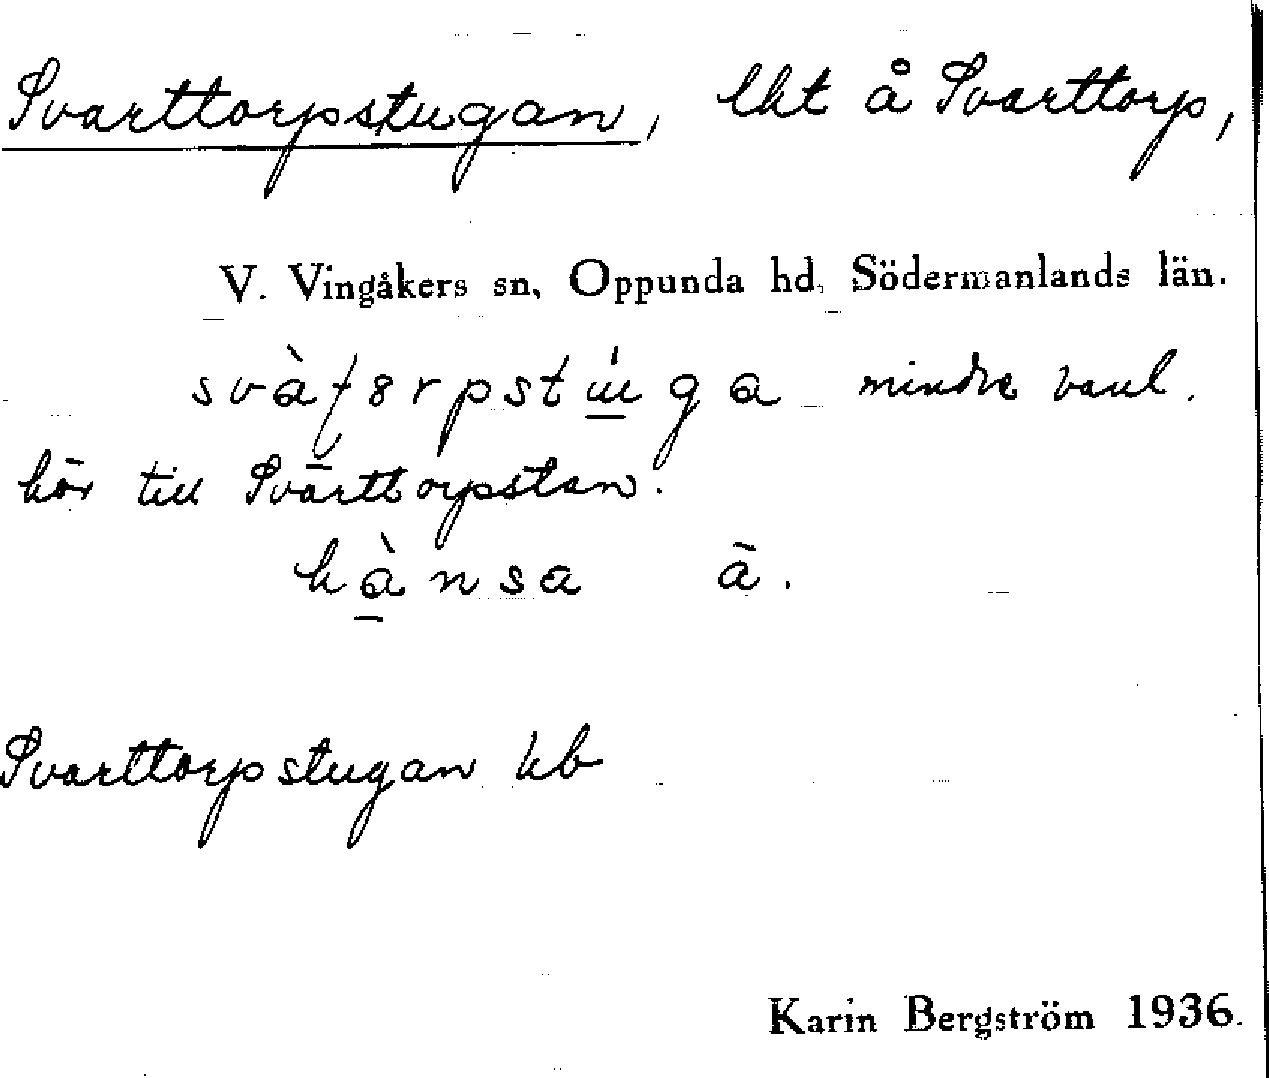 Svarttorpstugan, lht å Svarttorp,
V. Vingåkers sn, Oppunda hd, Södermanlands län.
mindre vanl.
hör till Svarttorpstan.
Svarttorpstugan kb
Karin Bergström 1936.